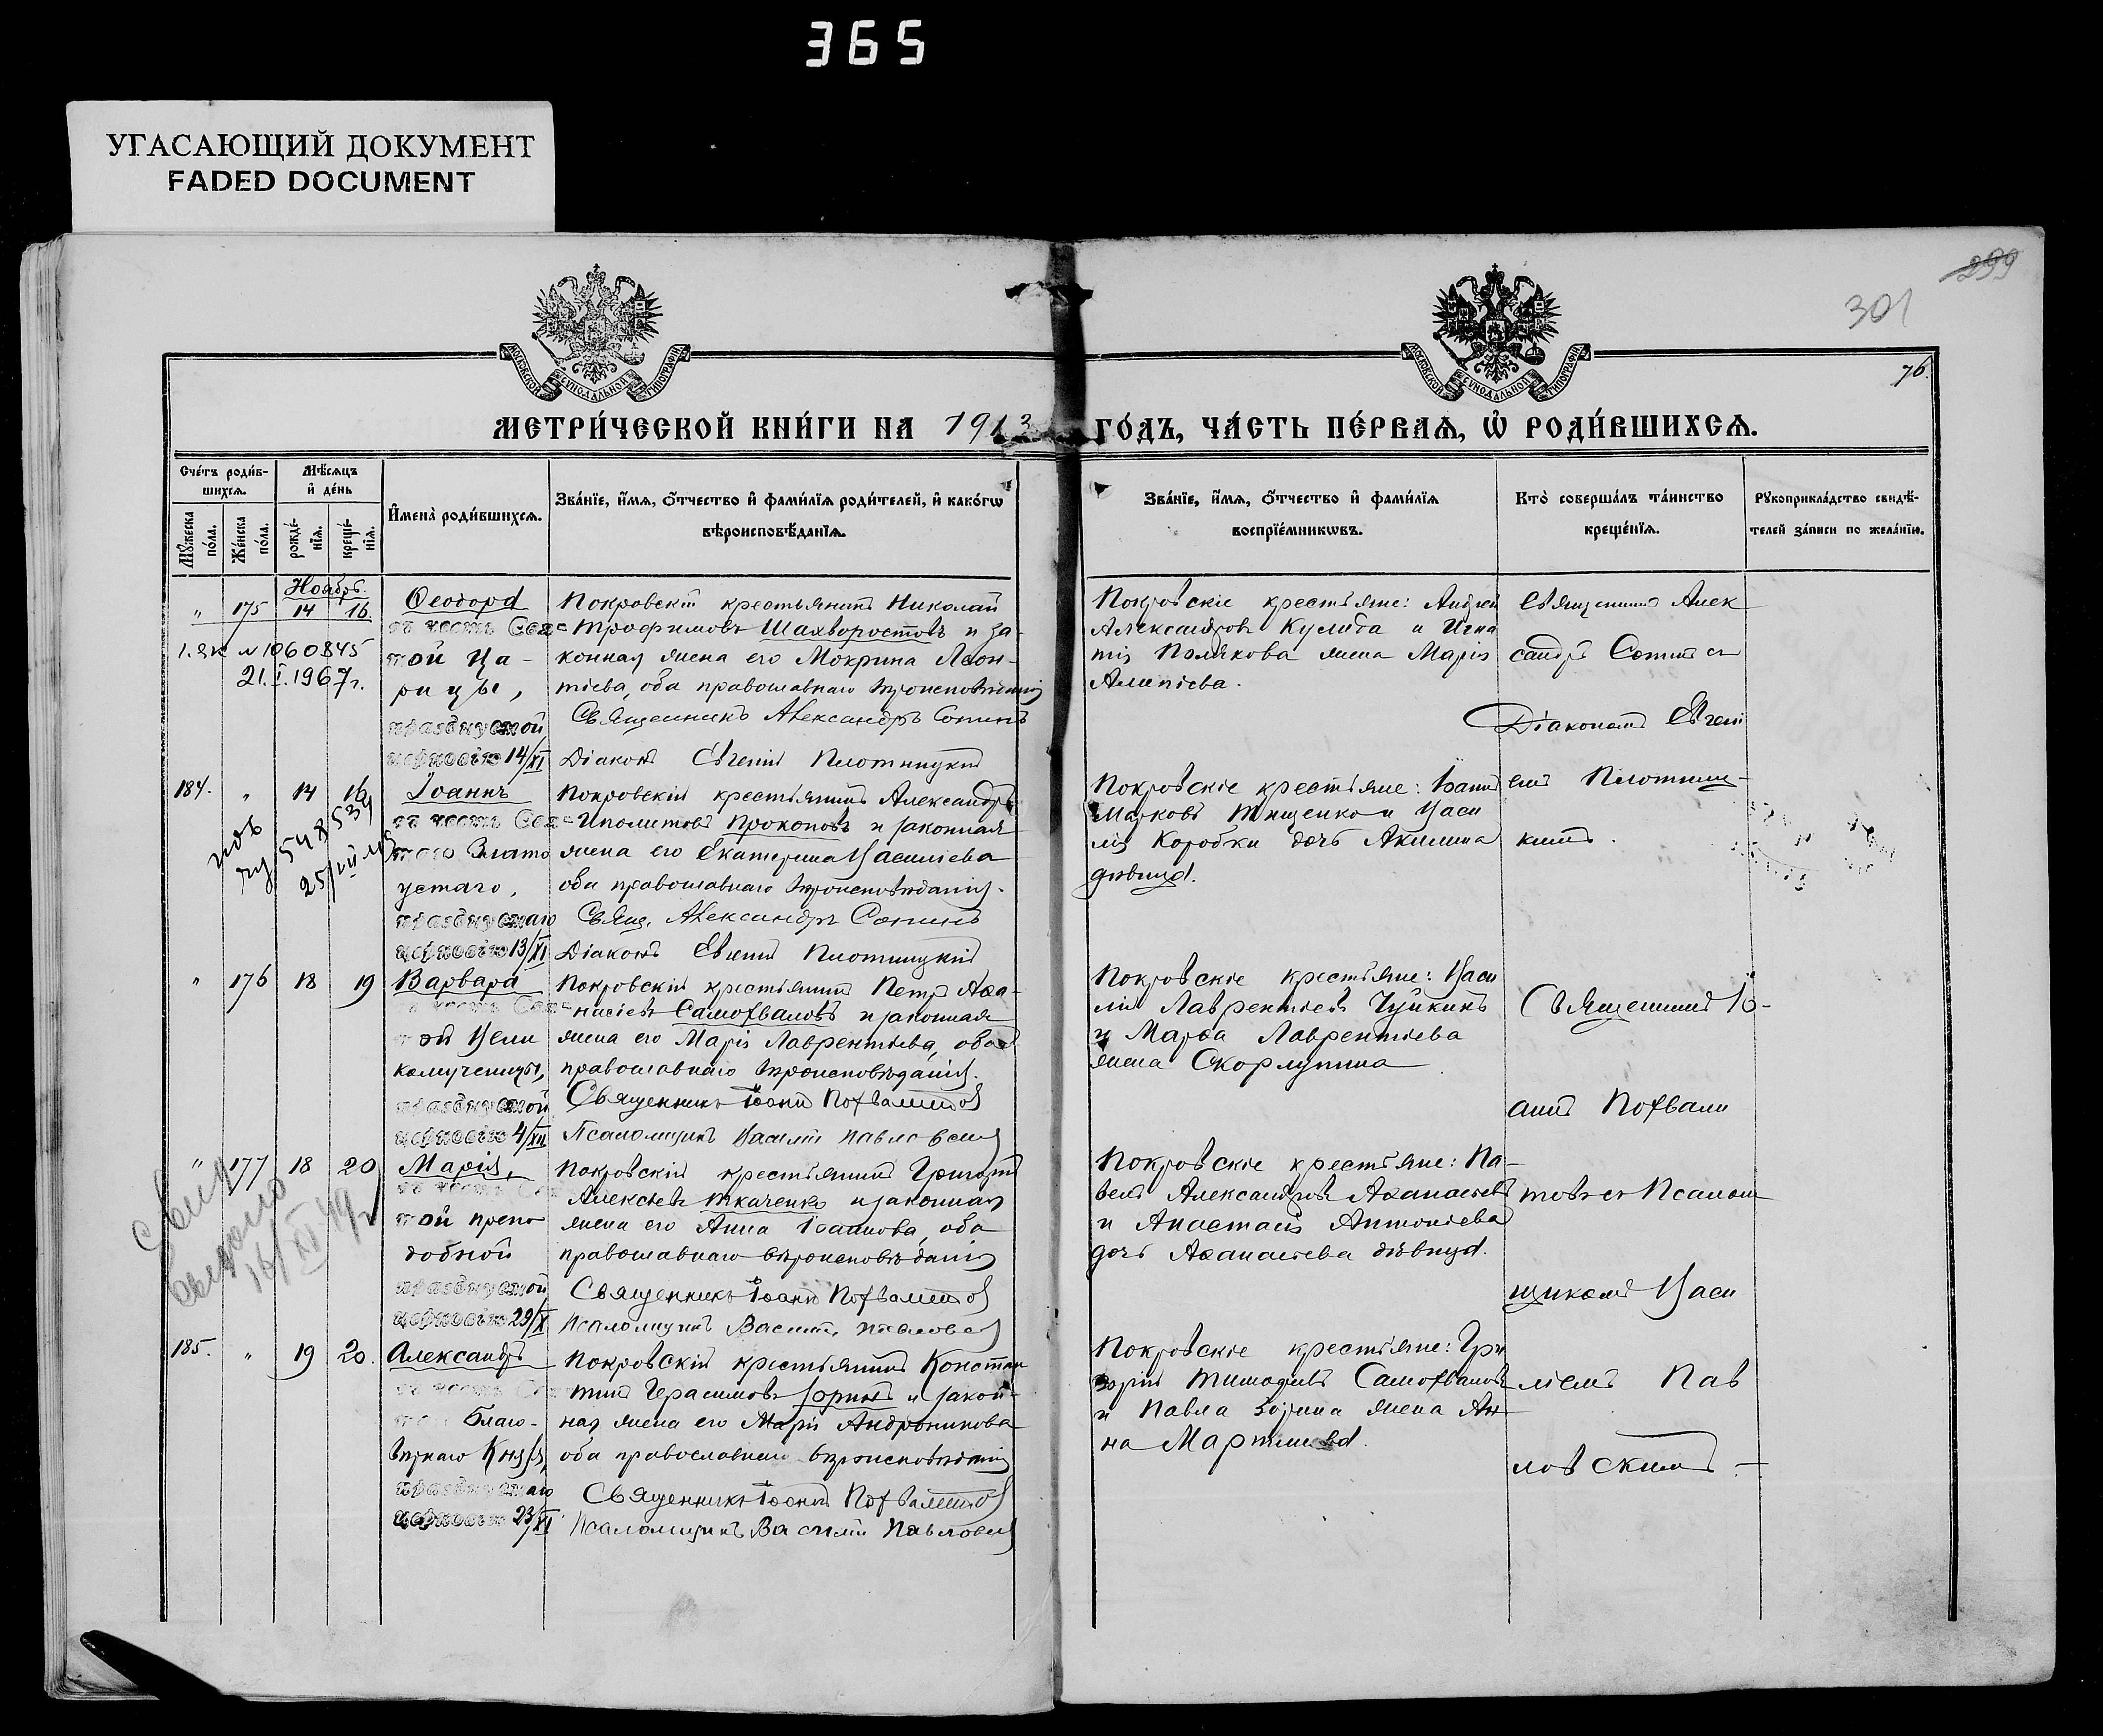 365
УГАСАЮЩИЙ ДОКУМЕНТ
FADED DOCUMENT
299
301
76.
МОСКОВСКОЙ СѴНОДАЛЬНОЙ ТИПОГРАФІИ
МОСКОВСКОЙ СѴНОДАЛЬНОЙ ТИПОГРАФІИ
МЕТРИ́ЧЕСКОЙ КНИ́ГИ НА 1913 ГО́ДЪ, ЧА́СТЬ ПЕ́РВАѦ, Ѡ҆ РОДИ́ВШИХСѦ.
Сче́тъ роди́в-
шихсѧ.
Мѣ́сѧцъ
и҆ де́нь
Мꙋ́жеска по́ла.
Же́нска по́ла.
рожде́-нїѧ.
креще́-нїѧ.
И҆мена̀ роди́вшихсѧ.
Зва́нїе, и҆́мѧ, ѻ҆́тчество и҆ фами́лїѧ роди́телей, и҆ како́гѡ
вѣроисповѣ́данїѧ.
Зва́нїе, и҆́мѧ, ѻ҆́тчество и҆ фами́лїѧ
воспрїе́мникѡвъ.
Кто̀ соверша́лъ та́инство
креще́нїѧ.
Рꙋкоприкла́дство свидѣ́-
телей за́писи по жела́нїю.
Ноябрь.
" 175 14 16
Ѳеодора
въ честь Свя-
той Ца-
рицы,
празднуемой
церковію 14/XI
Покровскій крестьянинъ Николай
Трофимовъ Шахворостовъ и за-
конная жена его Мокрина Леон-
тіева, оба православнаго вѣроисповѣданія
Священникъ Александръ Сопинъ
Діаконъ Евгеній Плотницкій
Покровскіе крестьяне: Андрей
Александровъ Кулига и Игна
тія Полякова жена Марія
Алипіева.
Священникъ Алек
сандръ Сопинъ съ
Діакономъ Евгені
емъ Плотниц-
кимъ.
№ 1060845
21.I.1967г.
184. " 14 16
Іоаннъ
въ честь Свя-
таго Злато
устаго,
празднуемаго
церковію 13/XI
Покровскій крестьянинъ Александръ
Иполитовъ Прокоповъ и законная
жена его Екатерина Васильева
оба православнаго вѣроисповѣданія.
Свящ. Александръ Сопинъ
Діаконъ Евгеній Плотницкій
Покровскіе крестьяне: Іоаннъ
Марковъ Тищенко и Васи
лія Коробки дочь Акилина
дѣвица.
" 176 18 19
Варвара
въ честь Свя-
той Вели
комученицы,
празднуемой
церковію 4/XII
Покровскій крестьянинъ Петръ Аѳа-
насіевъ Самохваловъ и законная
жена его Марія Лаврентіева, оба
православнаго вѣроисповѣданія.
Священникъ Іоаннъ Похвалитовъ
Псаломщикъ Василій Павловскій
Покровскіе крестьяне: Васи
лій Лаврентіевъ Чуйкинъ
и Марѳа Лаврентіева
жена Скорлупина
Священникъ Іо-
аннъ Похвали
товъ съ Псалом
щикомъ Васи
ліемъ Пав
ловскимъ.
" 177 18 20
Марія,
въ честь Свя
той препо
добной
празднуемой
церковію 29/X
Покровскій крестьянинъ Григорій
Алексѣевъ Ткаченко и законная
жена его Анна Іоаннова, оба
православнаго вѣроисповѣданія
Священникъ Іоаннъ Похвалитовъ
Псаломщикъ Василій Павловскій
Покровскіе крестьяне: Па-
велъ Александровъ Аѳанасьевъ
и Анастасія Антоніева
дочь Аѳанасьева дѣвица.
185. " 19 20.
Александръ
въ честь Свя
Благо-
вѣрнаго Князя,
празднуемаго
церковію 23/XI
Покровскій крестьянинъ Констан
тинъ Герасимовъ Зоринъ и закон-
ная жена его Марія Андроникова
оба православнаго вѣроисповѣданія
Священникъ Іоаннъ Похвалитовъ
Псаломщикъ Василій Павловскій
Покровскіе крестьяне: Гри
горій Тимоѳеевъ Самохваловъ
и Павла Зорина жена Ан-
на Мартинова.